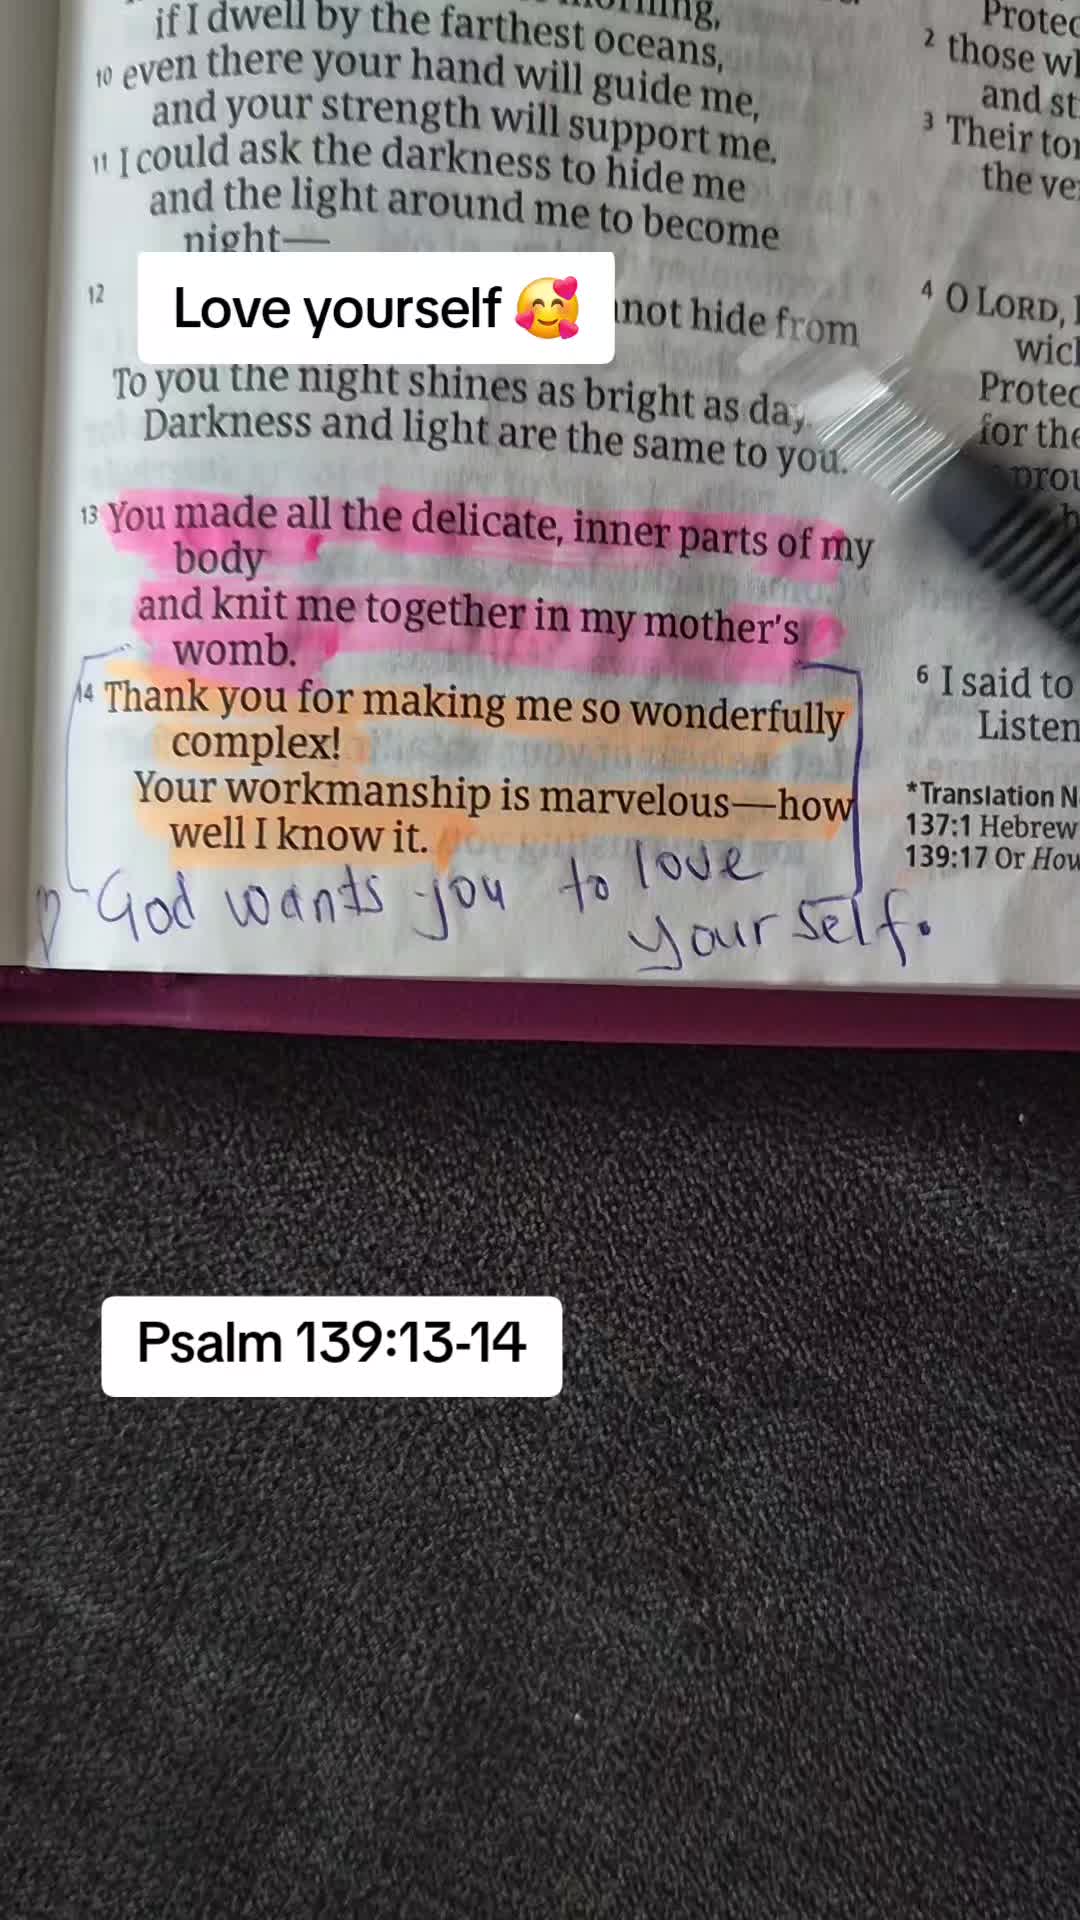 if I dwell by the farthest oceans,
10 even there your hand will guide me,
and your strength will support me.
11 I could ask the darkness to hide me
and the light around me to become
night—
12 hide from
Love yourself 🥰
To you the night shines as bright as day.
Darkness and light are the same to you.
13 You made all the delicate, inner parts of my
body
and knit me together in my mother's
womb.
14 Thank you for making me so wonderfully
complex!
Your workmanship is marvelous—how
well I know it.
God wants you to love
yourself.
2 those
and
3 Their
the
4 O LORD,
for the
6 I said to
Listen
*Translation
137:1 Hebrew
139:17 Or How
Psalm 139:13-14